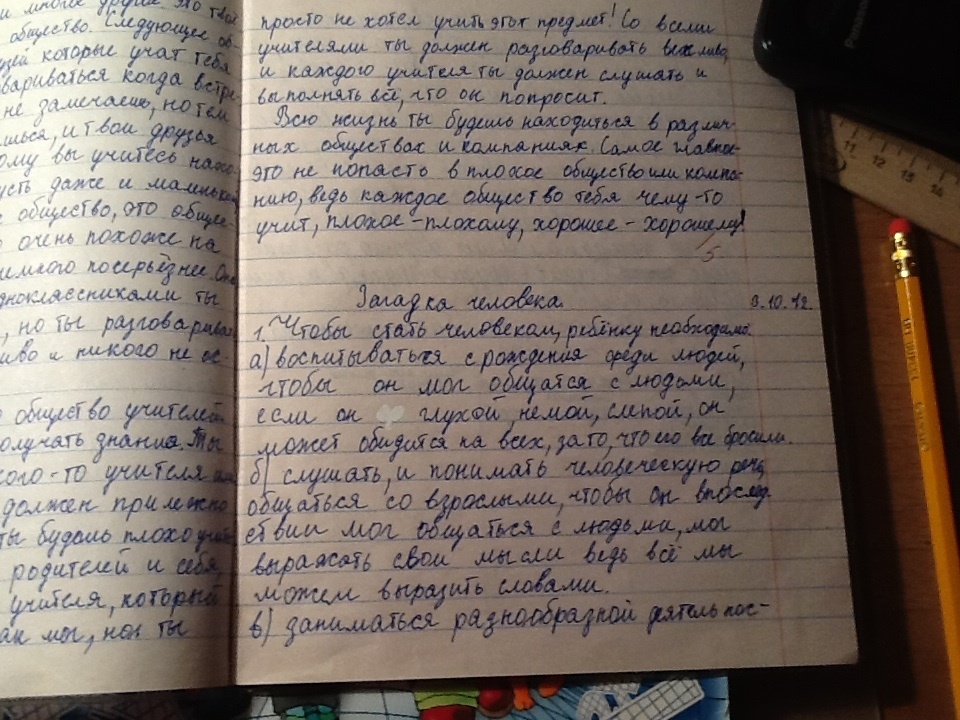 и многие другие это твоё
общество. Следующее об-
зей которые учат тебя
вариваться когда встре-
не замечаешь, но тем
шься, и твои друзья
ому вы учитесь нахо-
усть даже и маленькая
общество, это общес-
очень похоже на
много посерьёзнее. Он
дноклассниками ты
, но ты разговарива
иво и никого не ос-
общество учителей
олучать знания. Ты
кого-то учителя
должен прилежно
ты будешь плохо учит
родителей и себя,
учителя, который
ак мог, но ты
просто не хотел учить этот предмет! Со всеми
учителями ты должен разговаривать вежливо,
и каждого учителя ты должен слушать и
выполнять всё, что он попросит.
Всю жизнь ты будешь находиться в различ-
ных обществах и компаниях. Самое главное-
это не попасто в плохое общество или компа-
нию, ведь каждое общество тебя чему-то
учит, плохое-плохому, хорошее-хорошему!
5
Загадка человека. 9.10.12.
1. Чтобы стать человеком, ребёнку необходимо:
а) воспитываться с рождения среди людей,
чтобы он мог общатся с людьми,
если он глухой, немой, слепой, он
может обидется на всех, за то, что его все бросили.
б) слушать, и понимать человеческую речь,
общаться со взрослыми, чтобы он впослед-
ствии мог общаться с людьми, мог
выражать свои мысли ведь всё мы
можем выразить словами.
в) заниматься разнообразной деятельнос-
Panasonic
11 12 13 14